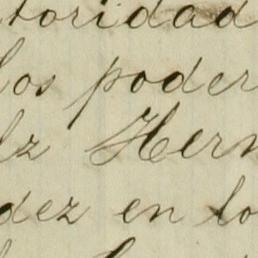 toridad
los poder
lz Hern
dez en lo